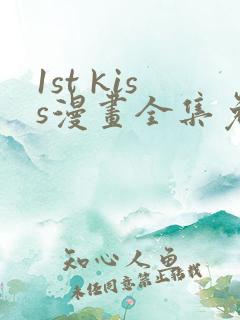 1st kis
s漫畫全集免
知心人魚
未经同意禁止转载